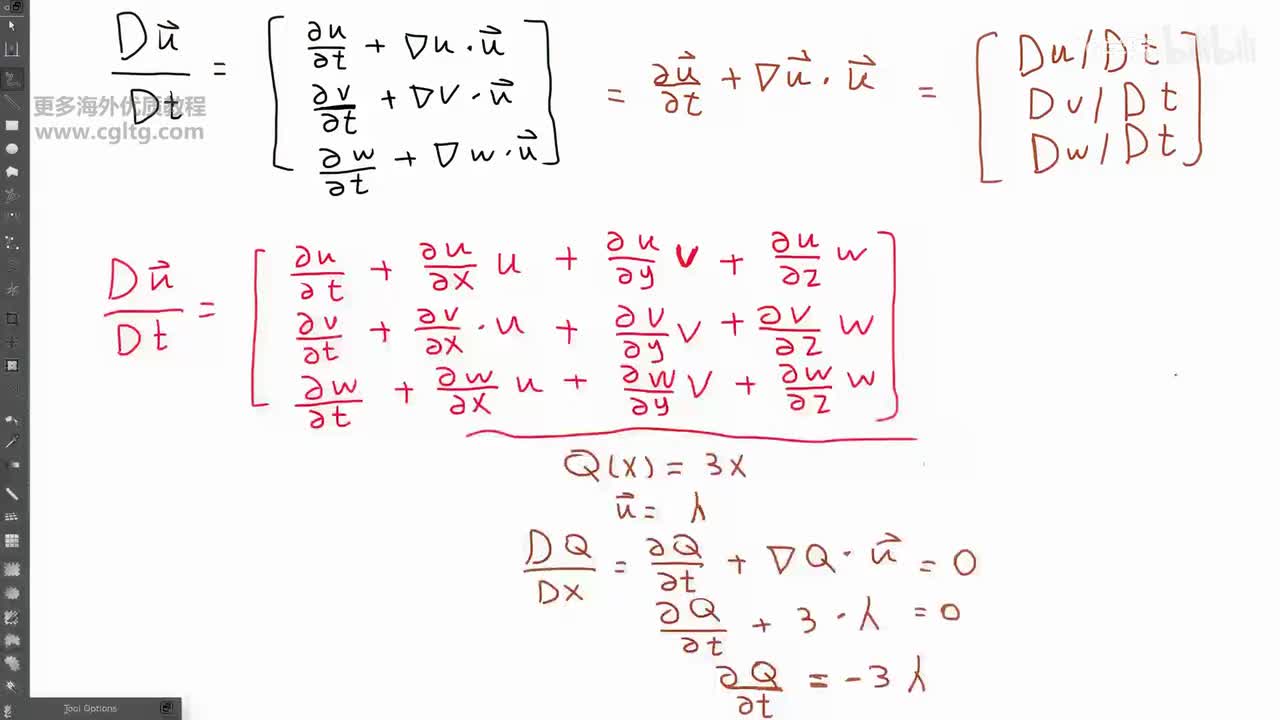 Du⃗/Dt = [ ∂u/∂t + ∇u · u⃗ ; ∂v/∂t + ∇v · u⃗ ; ∂w/∂t + ∇w · u⃗ ] = ∂u⃗/∂t + ∇u⃗ · u⃗ = [ Du/Dt ; Dv/Dt ; Dw/Dt ]
bilibili
更多海外优质教程
www.cgltg.com
Du⃗/Dt = [ ∂u/∂t + ∂u/∂x u + ∂u/∂y v + ∂u/∂z w
∂v/∂t + ∂v/∂x · u + ∂v/∂y v + ∂v/∂z w
∂w/∂t + ∂w/∂x u + ∂w/∂y v + ∂w/∂z w ]
Q(x) = 3x
u⃗ = λ
DQ/Dx = ∂Q/∂t + ∇Q · u⃗ = 0
∂Q/∂t + 3 · λ = 0
∂Q/∂t = -3 λ
Tool Options